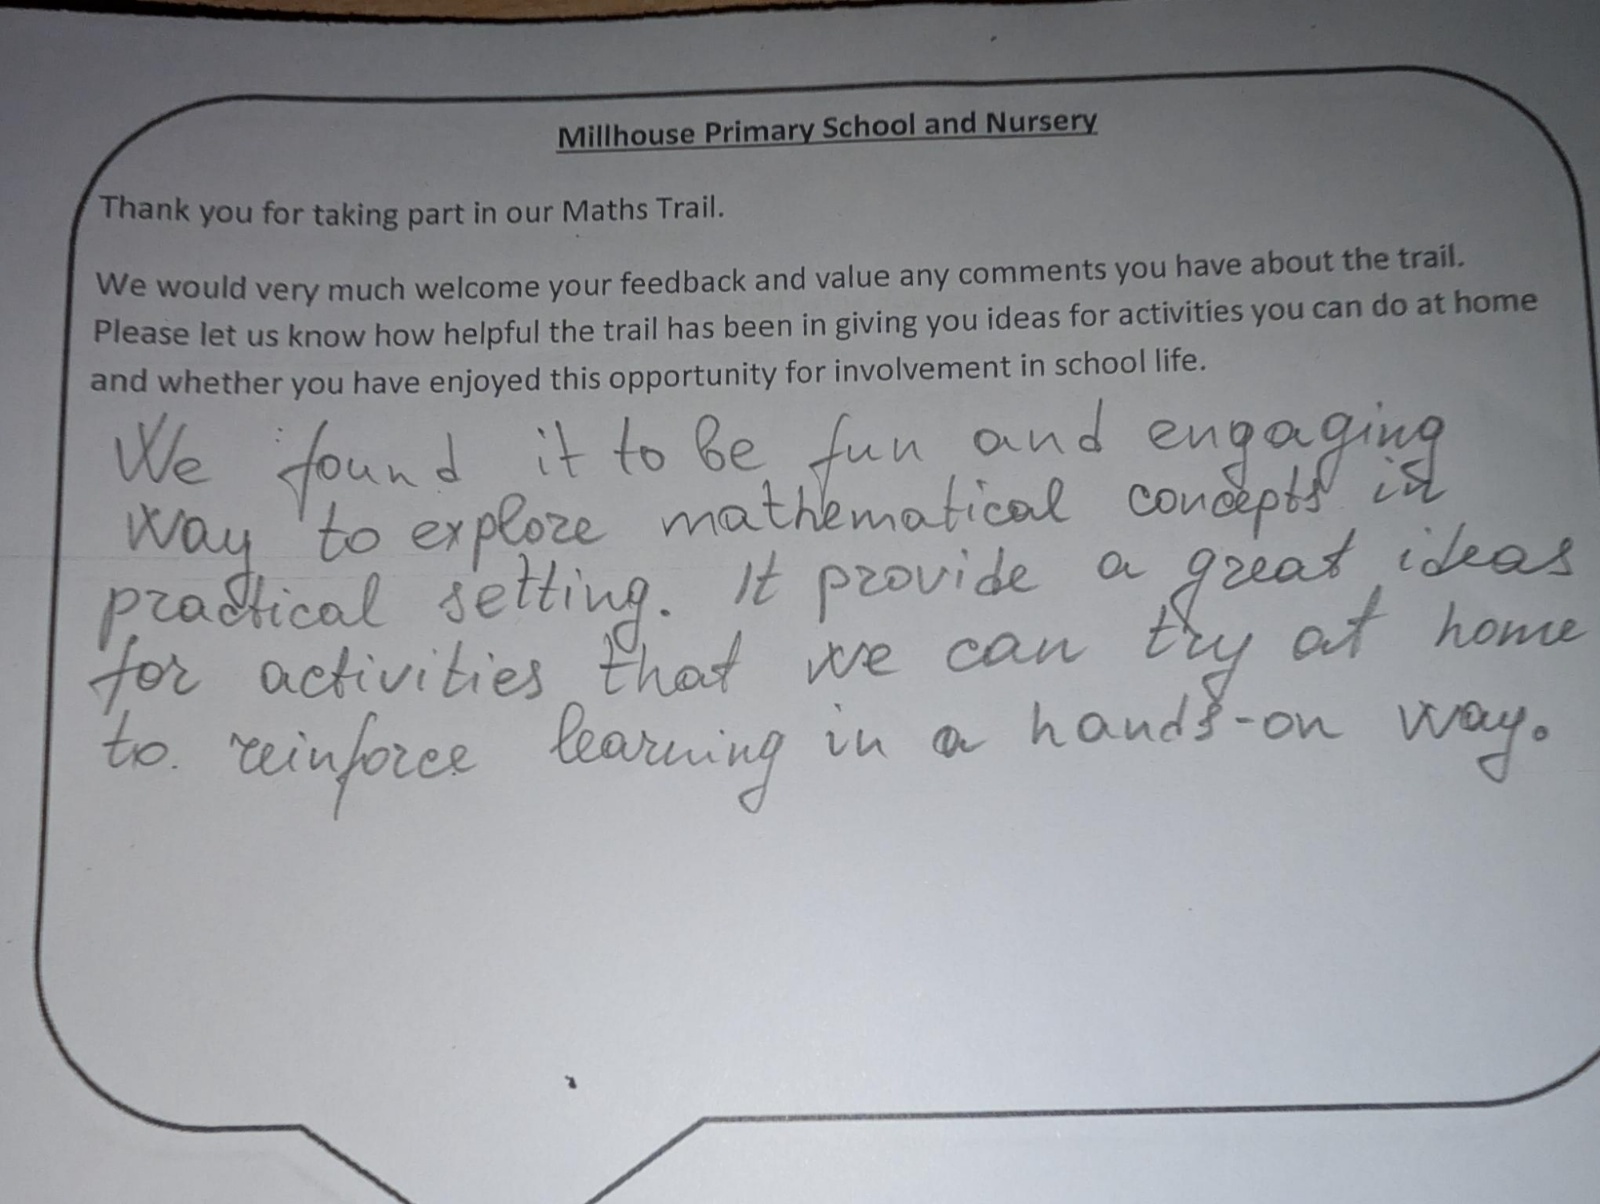 Millhouse Primary School and Nursery
Thank you for taking part in our Maths Trail.
We would very much welcome your feedback and value any comments you have about the trail.
Please let us know how helpful the trail has been in giving you ideas for activities you can do at home
and whether you have enjoyed this opportunity for involvement in school life.
We found it to be fun and engaging
way to explore mathematical concepts in
practical setting. It provide a great ideas
for activities that we can try at home
to. reinforce learning in a hands-on way.